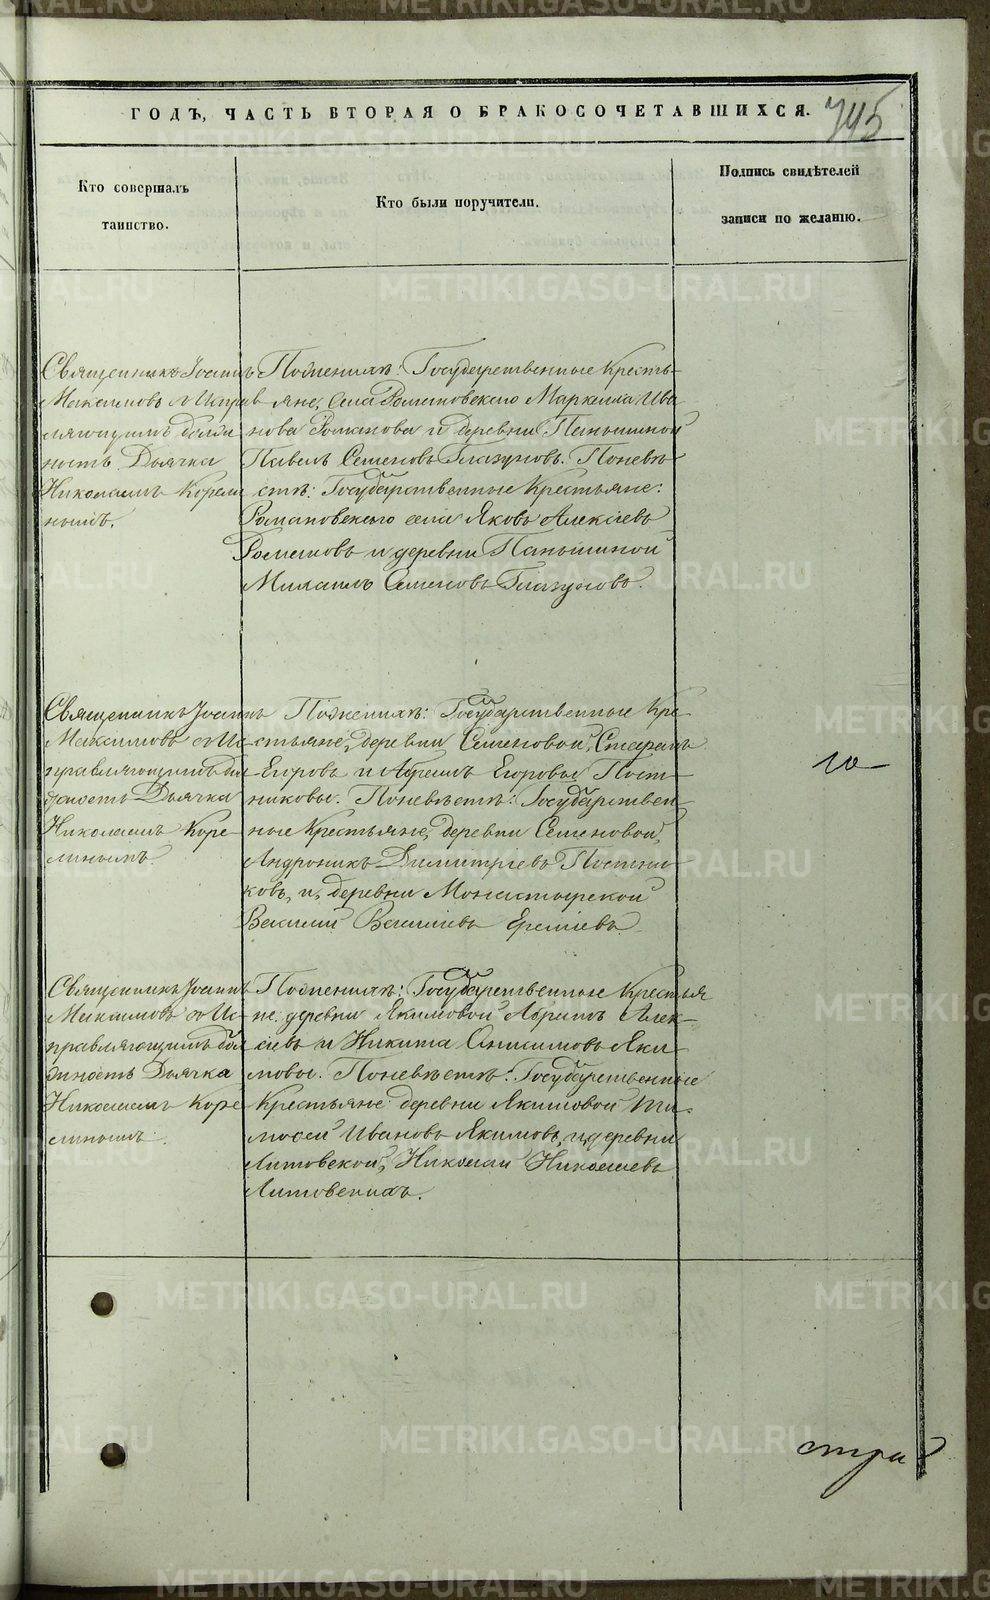 ГОДЪ, ЧАСТЬ ВТОРАЯ О БРАКОСОЧЕТАВШИХСЯ.
745
Кто совершалъ
таинство.
Кто были поручители.
Подпись свидѣтелей
записи по желанію.
Священникъ Іоаннъ
Максимовъ с Исправ
ляющимъ долж
ность Дьячка
Николаемъ Корели
нымъ.
По женихѣ: Государственные Кресть-
яне, села Романовскаго Маркелъ Ива
новъ Романовъ и деревни Паньшиной
Павелъ Семеновъ Глазуновъ. По невѣ-
стѣ: Государственные Крестьяне:
Романовскаго села Яковъ Алексѣевъ
Романовъ и деревни Паньшиной
Михаилъ Семеновъ Глазуновъ.
Священникъ Іоаннъ
Максимовъ съ Ис
правляющимъ дол
жность Дьячка
Николаемъ Коре-
линымъ.
По женихѣ: Государственные Кре-
стьяне, деревни Семеновой,
Егоровъ и Абрамъ Егоровы Пост-
никовы. По невѣстѣ: Государствен-
ные Крестьяне, деревни Семеновой,
Андроникъ Димитріевъ Постни-
ковъ, и, деревни Монастырской
Василій Василіевъ Еремѣевъ.
10
Священникъ Іоаннъ
Максимовъ съ Ис-
правляющимъ дол
жность Дьячка
Николаемъ Коре
линымъ.
По женихѣ: Государственные Крестья
не деревни Якимовой Абрамъ Алек-
сѣевъ и Никита Анисимовъ Яки-
мовы. По невѣстѣ: Государственные
Крестьяне деревни Якимовой Ти-
мофей Ивановъ Якимовъ, и деревни
Литовской, Николай Николаевъ
Литовскихъ.
три
METRIKI.GASO-URAL.RU